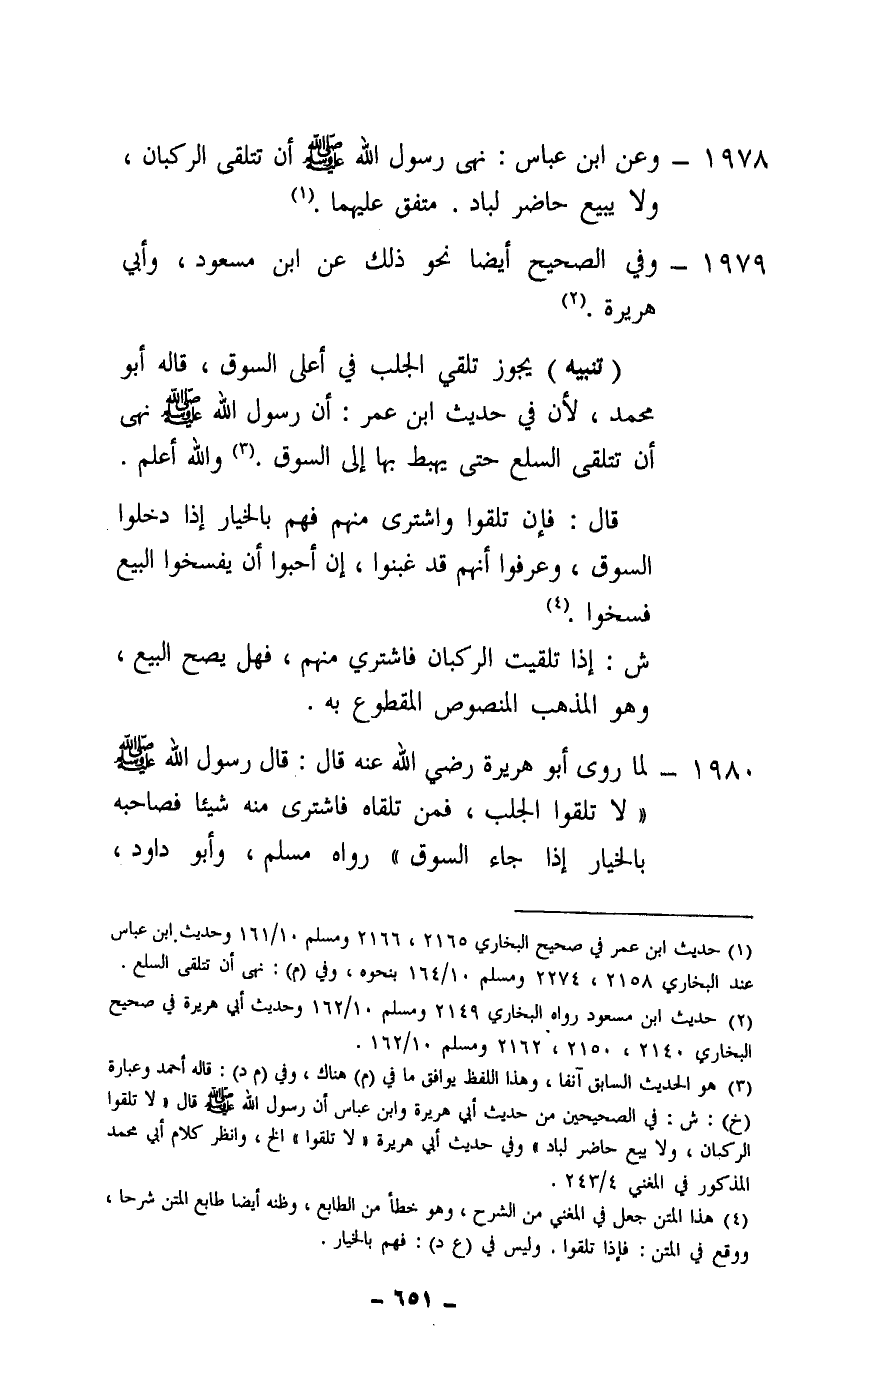 ١٩٧٨ – وعن ابن عباس : نهى رسول الله ﷺ أن تتلقى الركبان ،
ولا يبيع حاضر لباد . متفق عليهما .(١)
١٩٧٩ – وفي الصحيح أيضا نحو ذلك عن ابن مسعود ، وأبي
هريرة .(٢)
( تنبيه ) يجوز تلقي الجلب في أعلى السوق ، قاله أبو
محمد ، لأن في حديث ابن عمر : أن رسول الله ﷺ نهى
أن تتلقى السلع حتى يهبط بها إلى السوق .(٣) والله أعلم .
قال : فإن تلقوا واشترى منهم فهم بالخيار إذا دخلوا
السوق ، وعرفوا أنهم قد غبنوا ، إن أحبوا أن يفسخوا البيع
فسخوا .(٤)
ش : إذا تلقيت الركبان فاشتري منهم ، فهل يصح البيع ،
وهو المذهب المنصوص المقطوع به .
١٩٨٠ – لما روى أبو هريرة رضي الله عنه قال : قال رسول الله ﷺ
« لا تلقوا الجلب ، فمن تلقاه فاشترى منه شيئا فصاحبه
بالخيار إذا جاء السوق » رواه مسلم ، وأبو داود ،
(١) حديث ابن عمر في صحيح البخاري ٢١٦٥ ، ٢١٦٦ ومسلم ١٦١/١٠ وحديث ابن عباس
عند البخاري ٢١٥٨ ، ٢٢٧٤ ومسلم ١٦٤/١٠ بنحوه ، وفي (م) : نهى أن تتلقى السلع .
(٢) حديث ابن مسعود رواه البخاري ٢١٤٩ ومسلم ١٦٢/١٠ وحديث أبي هريرة في صحيح
البخاري ٢١٤٠ ، ٢١٥٠ ، ٢١٦٢ ومسلم ١٦٢/١٠ .
(٣) هو الحديث السابق آنفا ، وهذا اللفظ يوافق ما في (م) هناك ، وفي (م د) : قاله أحمد وعبارة
(خ) : ش : في الصحيحين من حديث أبي هريرة وابن عباس أن رسول الله ﷺ قال « لا تلقوا
الركبان ، ولا يبع حاضر لباد » وفي حديث أبي هريرة « لا تلقوا » الخ ، وانظر كلام أبي محمد
المذكور في المغني ٢٤٣/٤ .
(٤) هذا المتن جعل في المغني من الشرح ، وهو خطأ من الطابع ، وظنه أيضا طابع المتن شرحا ،
ووقع في المتن : فإذا تلقوا . وليس في (ع د) : فهم بالخيار .
– ٦٥١ –